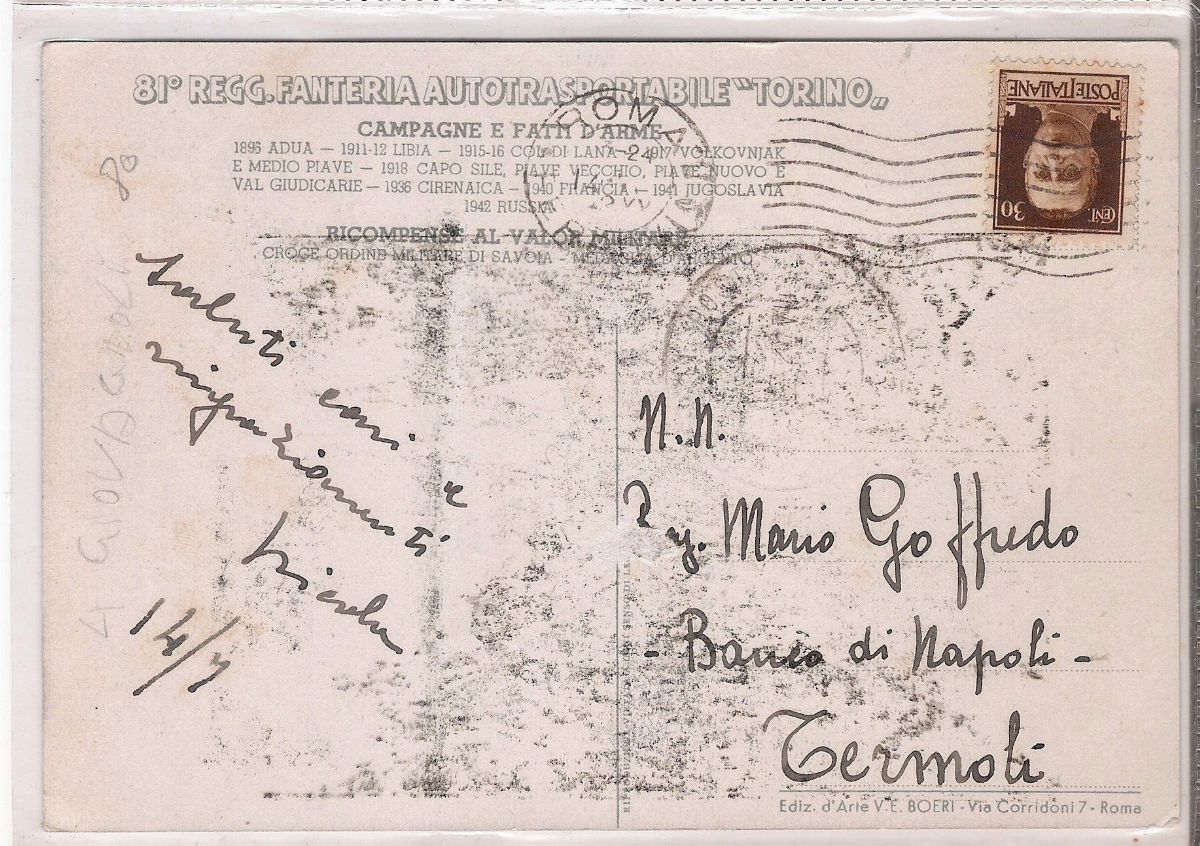 81º REGG. FANTERIA AUTOTRASPORTABILE "TORINO„
CAMPAGNE E FATTI D'ARME
1896 ADUA — 1911-12 LIBIA — 1915-16 COL DI LANA — 1917 VOLKOVNJAK
E MEDIO PIAVE — 1918 CAPO SILE, PIAVE VECCHIO, PIAVE NUOVO E
VAL GIUDICARIE — 1936 CIRENAICA — 1940 FRANCIA — 1941 JUGOSLAVIA
1942 RUSSIA
RICOMPENSE AL VALOR MILITARE
CROCE ORDINE MILITARE DI SAVOIA - MEDAGLIA D'ARGENTO
ROMA
POSTE ITALIANE
CENT. 30
80
Saluti cari e
ringraziamenti
14/7
N.N.
Rag. Mario Goffredo
- Banco di Napoli -
Termoli
Ediz. d'Arte V. E. BOERI - Via Corridoni 7 - Roma